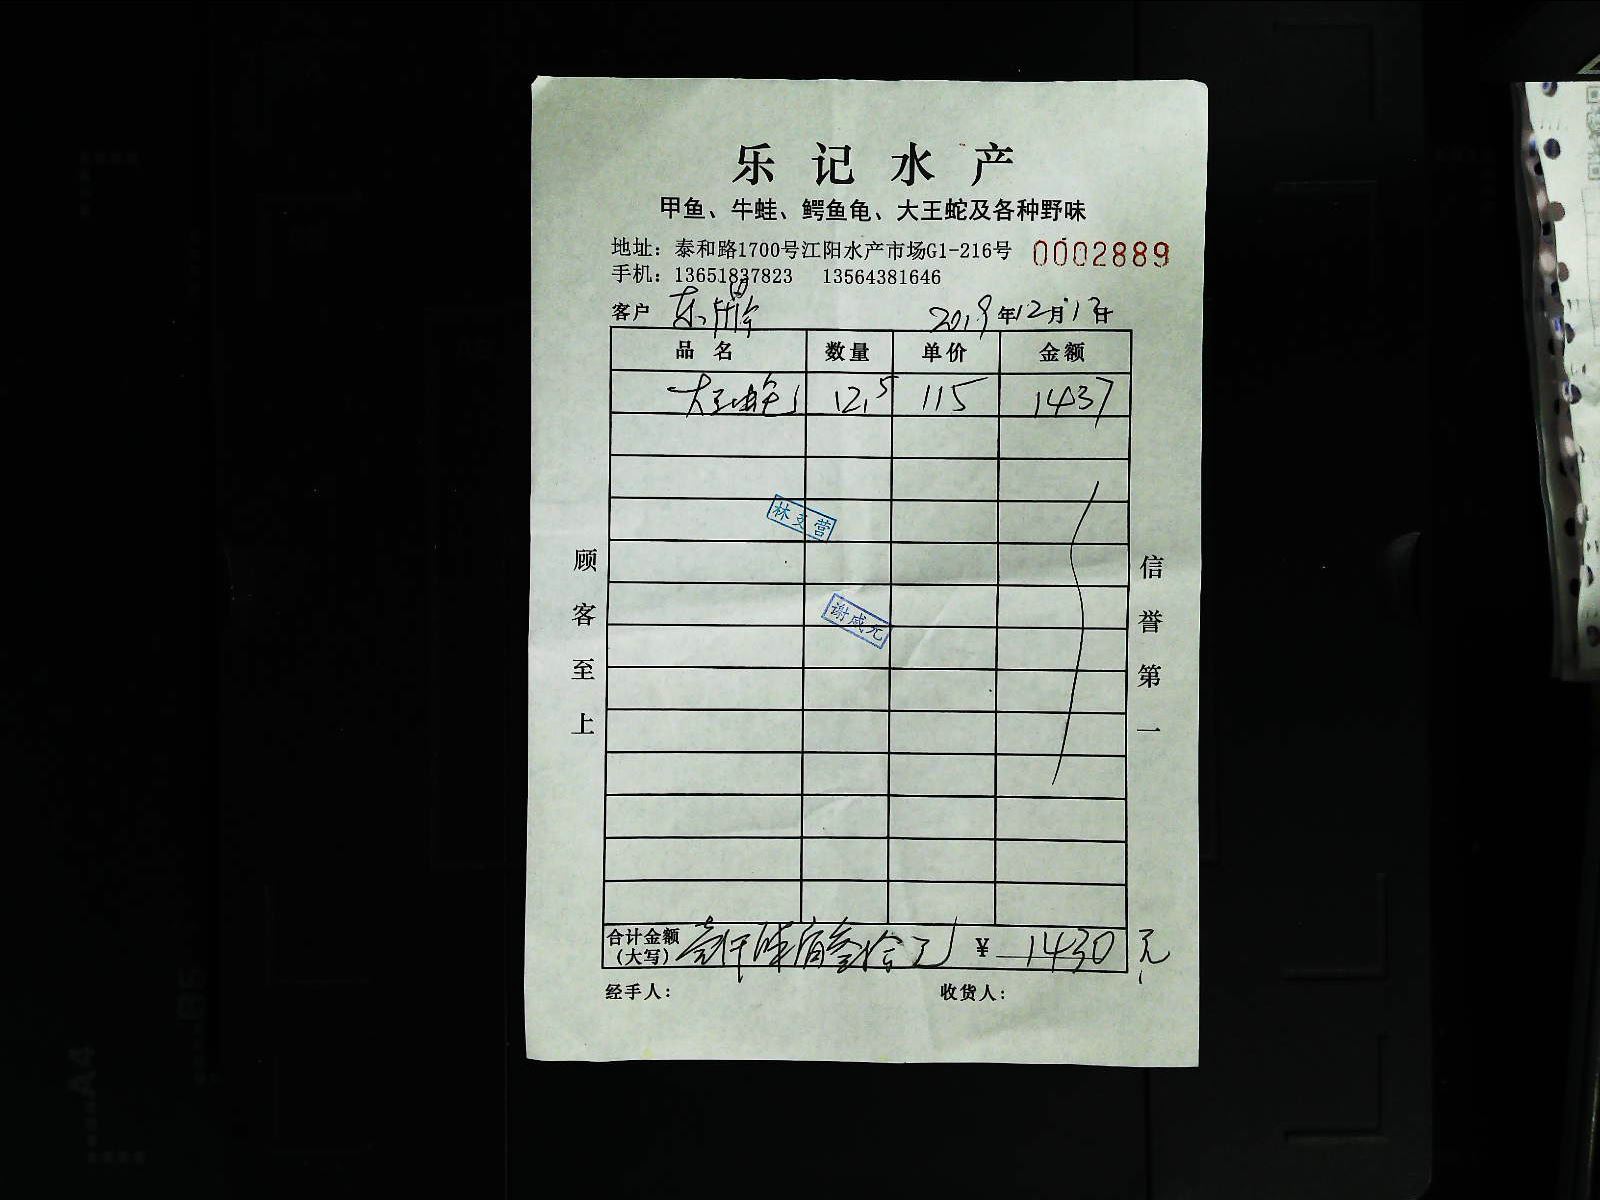 乐记水产
甲鱼、牛蛙、鳄鱼龟、大王蛇及各种野味
地址：泰和路1700号江阳水产市场G1-216号 0002889
手机：13651837823 13564381646
客户 2019年12月13日
品名 数量 单价 金额
大王蛇 12.5 115 1437
林文营
谢咸元
顾客至上
信誉第一
合计金额（大写）壹仟肆佰叁拾 ¥ 1430元
经手人： 收货人：
A4